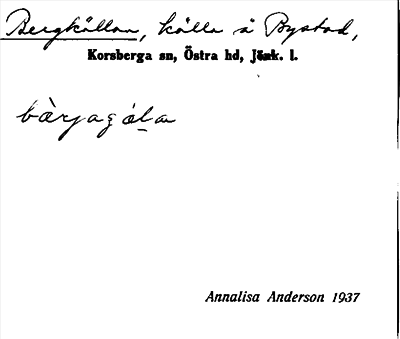 Bergkällan, källa å Bystad,
Korsberga sn, Östra hd, Jönk. l.
Annalisa Anderson 1937